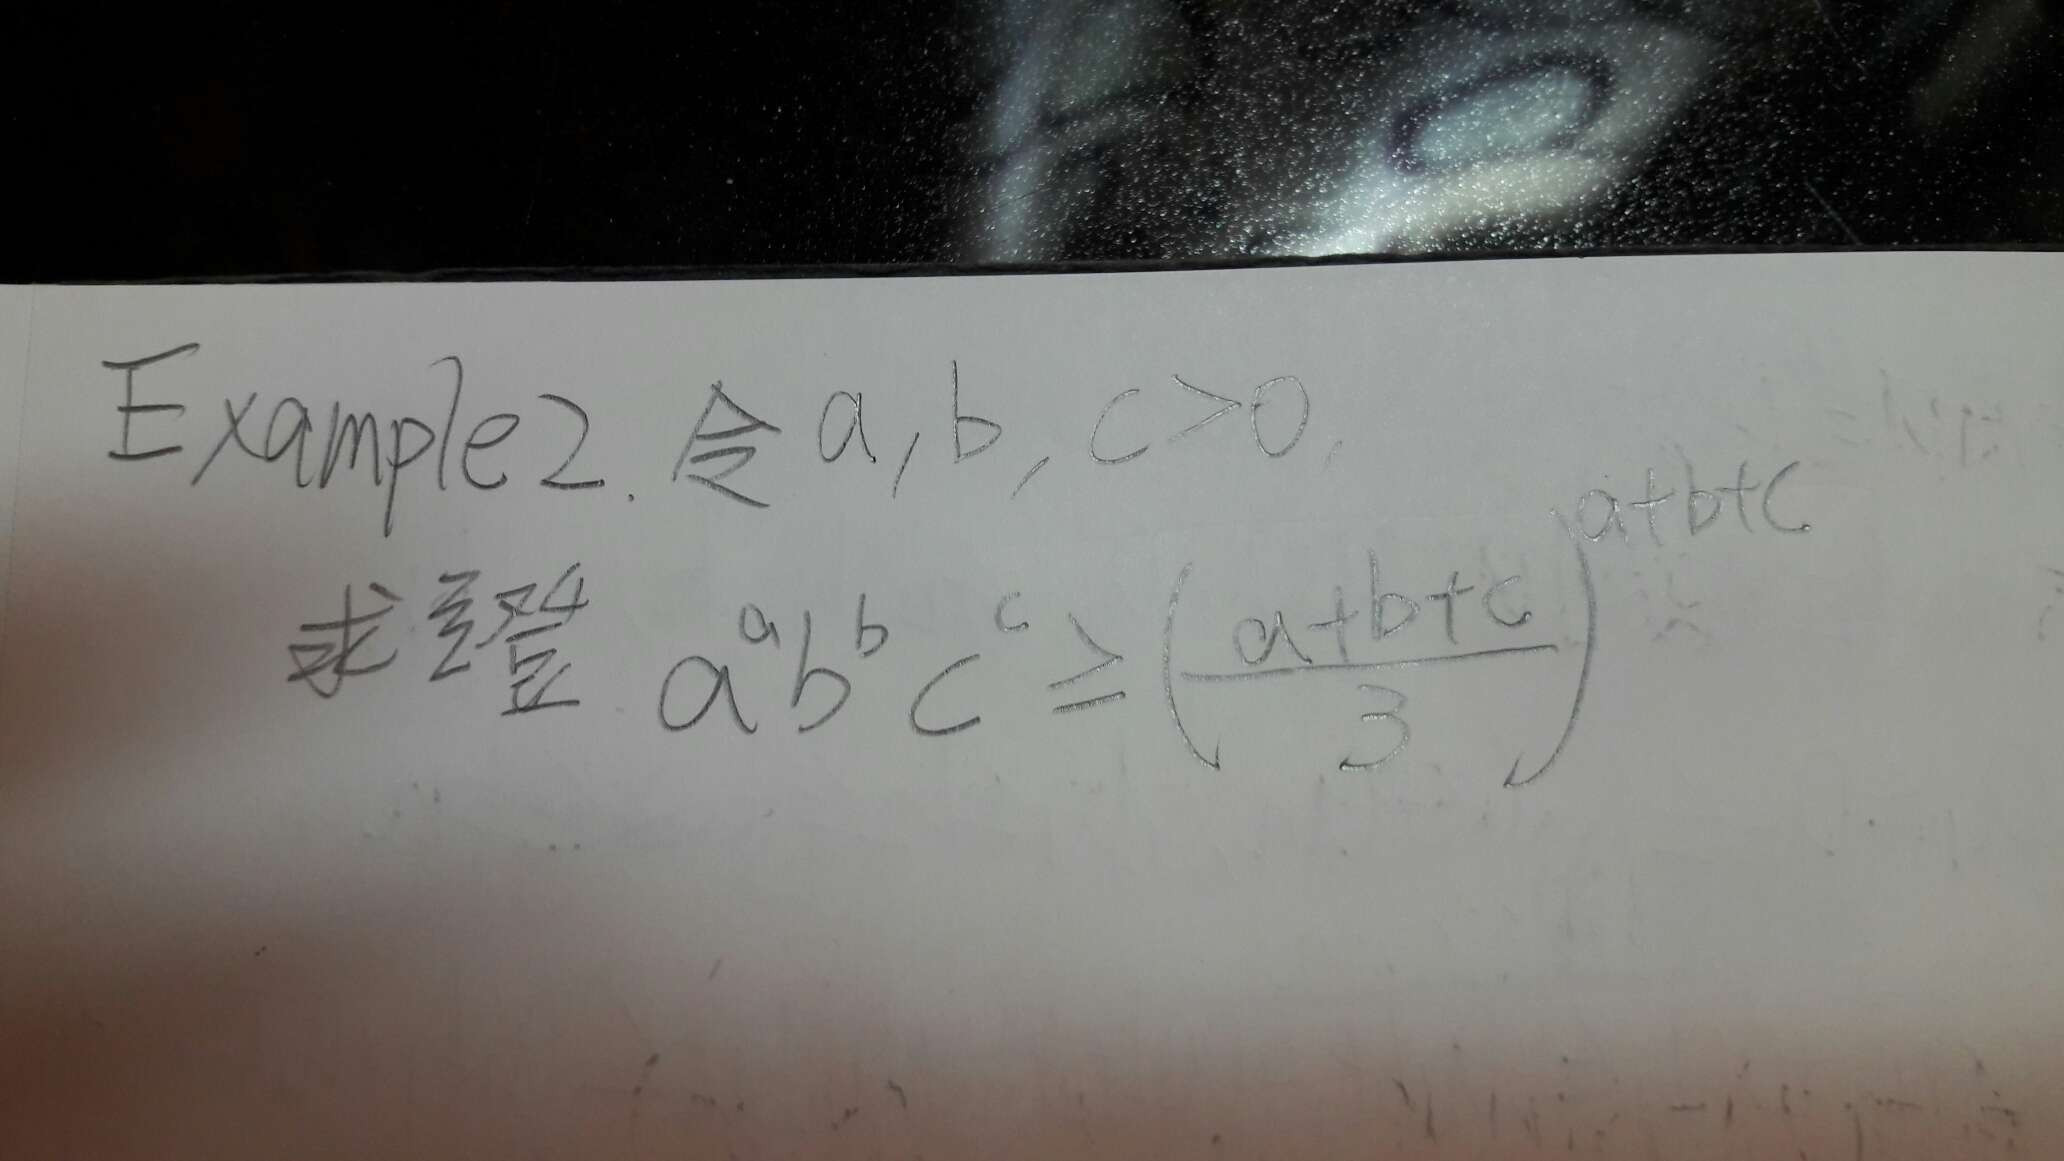 Example 2. 令 a, b, c > 0,
求證 a^a b^b c^c ≥ ((a+b+c)/3)^(a+b+c)